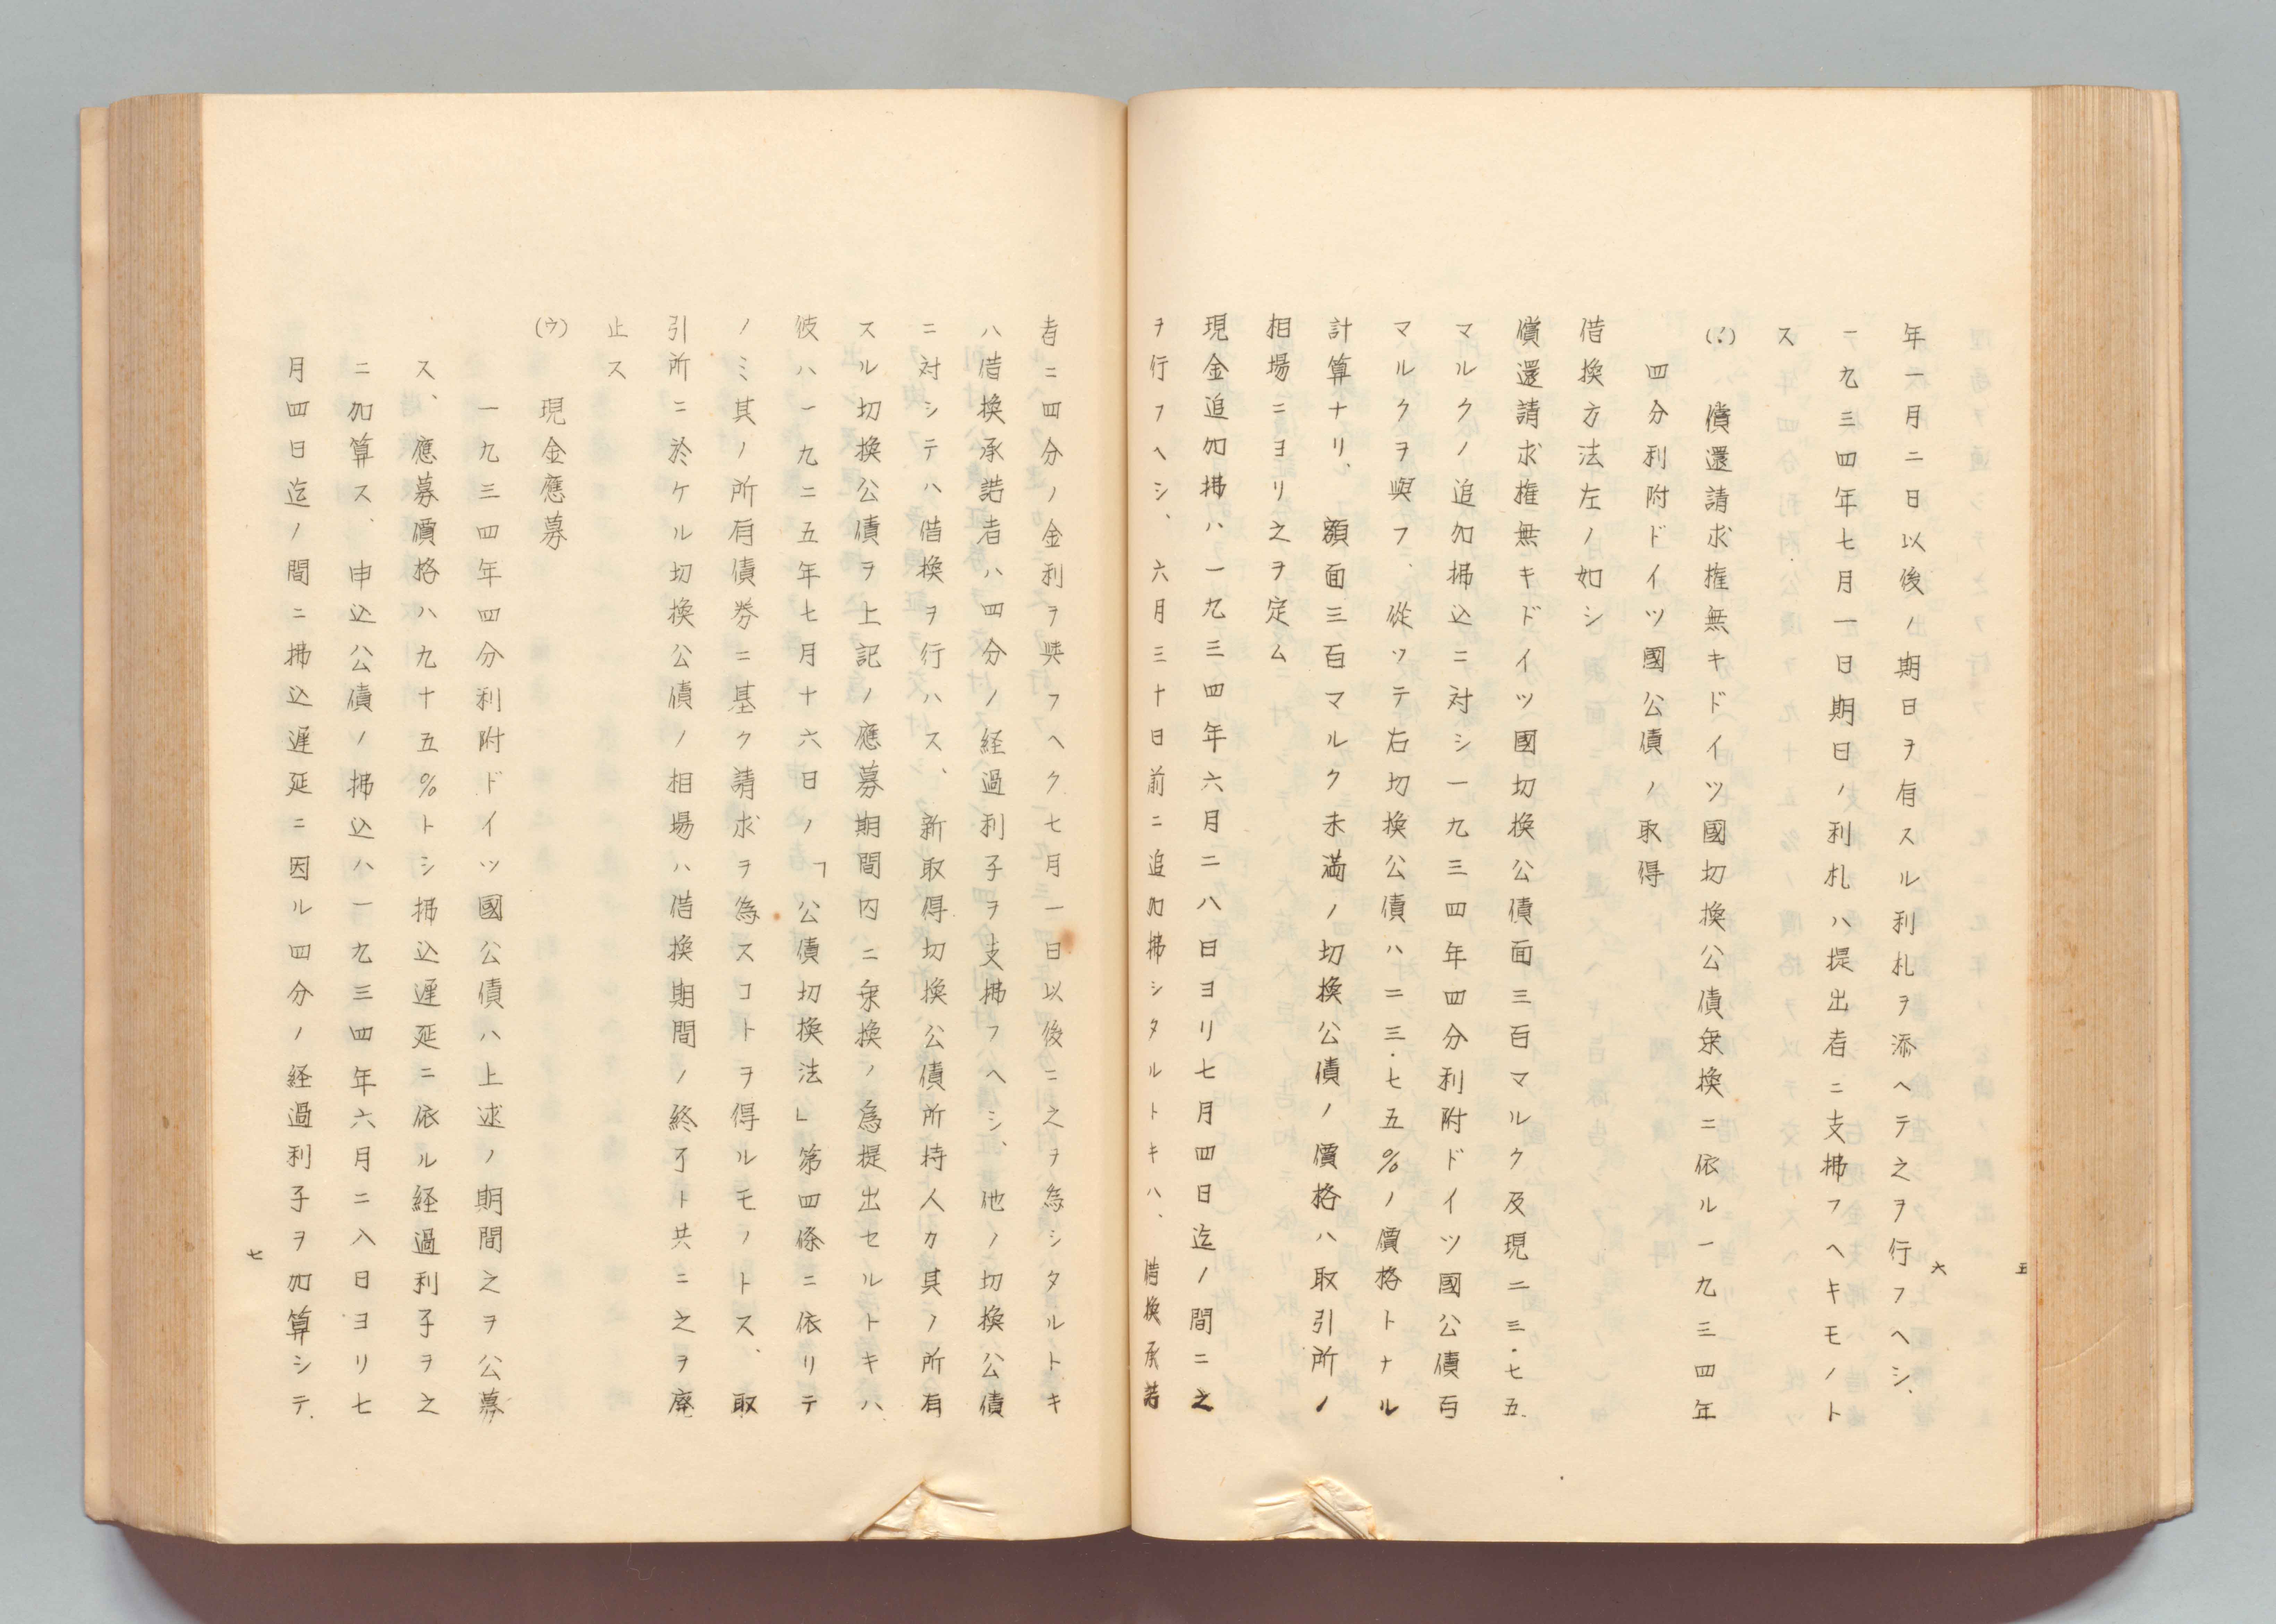 年一月二日以後ノ期日ヲ有スル利札ヲ添ヘテ之ヲ行フヘシ、
一九三四年七月一日期日ノ利札ハ提出者ニ支拂フヘキモノト
ス
償還請求権無キドイツ國切換公債乗換ニ依ル一九三四年
四分利附ドイツ國公債ノ取得
借換方法左ノ如シ
償還請求権無キドイツ國切換公債面三百マルク及現二三・七五
マルクノ追加拂込ニ対シ一九三四年四分利附ドイツ國公債百
マルクヲ與フ、從ツテ右切換公債ハ二三・七五%ノ價格トナル
計算ナリ、額面三百マルク未満ノ切換公債ノ價格ハ取引所ノ
相場ニヨリ之ヲ定ム
現金追加拂ハ一九三四年六月二八日ヨリ七月四日迄ノ間ニ之
ヲ行フヘシ、六月三十日前ニ追加拂シタルトキハ、借換承諾
六
五
者ニ四分ノ金利ヲ與フヘク七月一日以後ニ之ヲ為シタルトキ
ハ借換承諾者ハ四分ノ経過利子ヲ支拂フヘシ、他ノ切換公債
ニ対シテハ借換ヲ行ハス、新取得切換公債所持人カ其ノ所有
スル切換公債ヲ上記ノ應募期間内ニ乗換ノ為提出セルトキハ
彼ハ一九二五年七月十六日ノ「公債切換法」第四條ニ依リテ
ノミ其ノ所有債券ニ基ク請求ヲ為スコトヲ得ルモノトス、取
引所ニ於ケル切換公債ノ相場ハ借換期間ノ終了ト共ニ之ヲ廃
止ス
(ウ) 現金應募
一九三四年四分利附ドイツ國公債ハ上述ノ期間之ヲ公募
ス、應募價格ハ九十五%トシ拂込遅延ニ依ル経過利子ヲ之
ニ加算ス、申込公債ノ拂込ハ一九三四年六月二八日ヨリ七
月四日迄ノ間ニ拂込遅延ニ因ル四分ノ経過利子ヲ加算シテ、
七